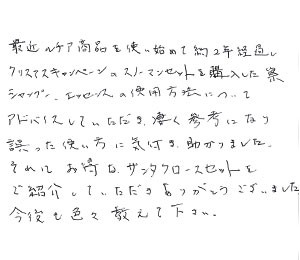 最近ルケア商品を使い始めて約2年経過し
クリスマスキャンペーンのスノーマンセットを購入した際
シャンプー、エッセンスの使用方法について
アドバイスしていただき、凄く参考になり
誤った使い方に気付き、助かりました。
それにお得な、サンタクロースセットを
ご紹介していただきありがとうございました
今後も色々教えて下さい。